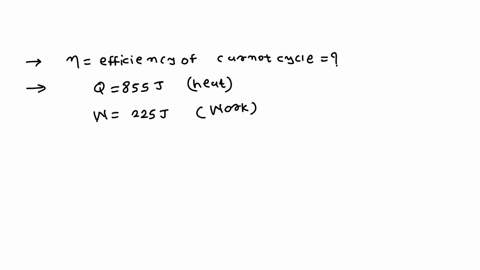 → η = efficiency of curnot cycle = ?
→ Q = 855 J (heat)
W = 225 J (Work)